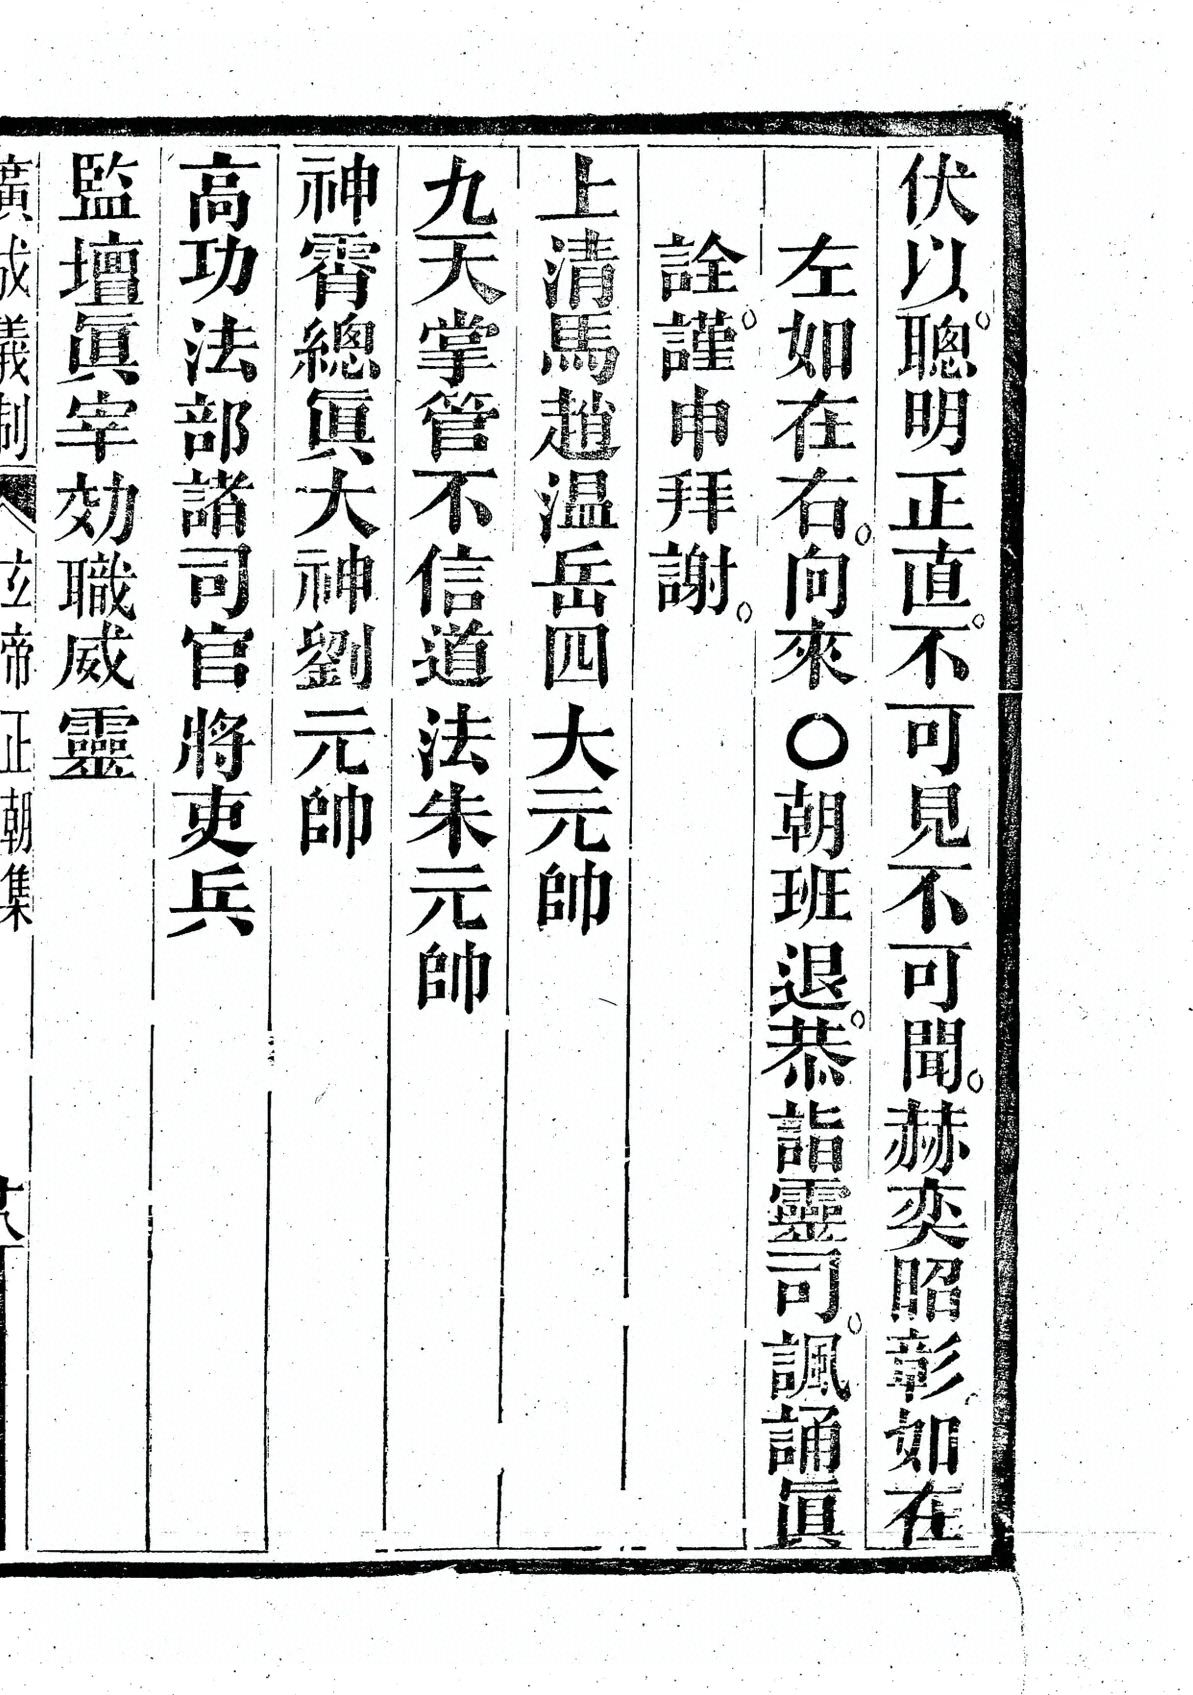 伏以。聰明正直。不可見不可聞。赫奕昭彰。如在
左如在右。向來〇朝班退。恭詣靈司。諷誦眞
詮。謹申拜謝。
上清馬趙温岳四大元帥
九天掌管不信道法朱元帥
神霄總眞大神劉元帥
高功法部諸司官將吏兵
監壇眞宰効職威靈
廣成儀制 玄帝正朝集 十八